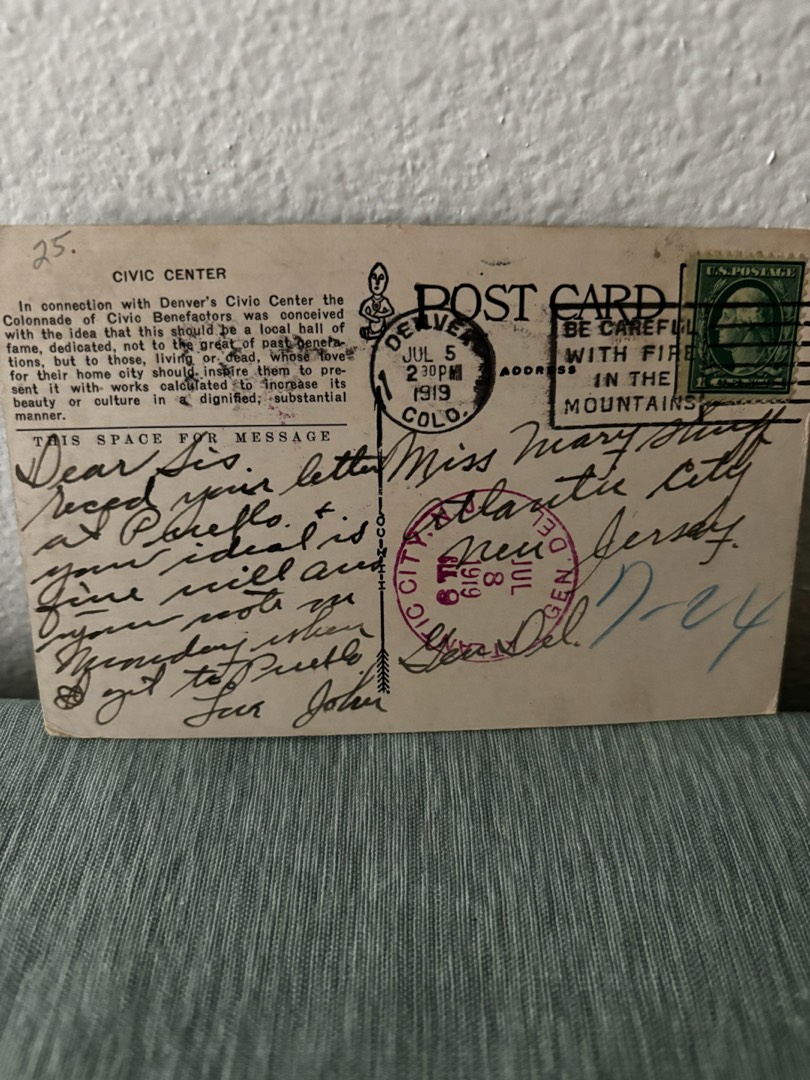 25.
CIVIC CENTER
In connection with Denver's Civic Center the
Colonnade of Civic Benefactors was conceived
with the idea that this should be a local hall of
fame, dedicated, not to the great of past genera-
tions, but to those, living or dead, whose love
for their home city should inspire them to pre-
sent it with works calculated to increase its
beauty or culture in a dignified, substantial
manner.
THIS SPACE FOR MESSAGE
Dear Sis.
Recd your letter
at Pueblo. +
your ideal is
fine will
your note on
Monday when
I get to Pueblo
John
POST CARD
ADDRESS
DENVER
JUL 5
2 30 PM
1919
COLO.
1
BE CAREFUL
WITH FIRE
IN THE
MOUNTAINS
U.S. POSTAGE
Miss Mary
Atlantic City
New Jersey.
Gen Del.
GEN DEL
JUL
8
1919
7-24